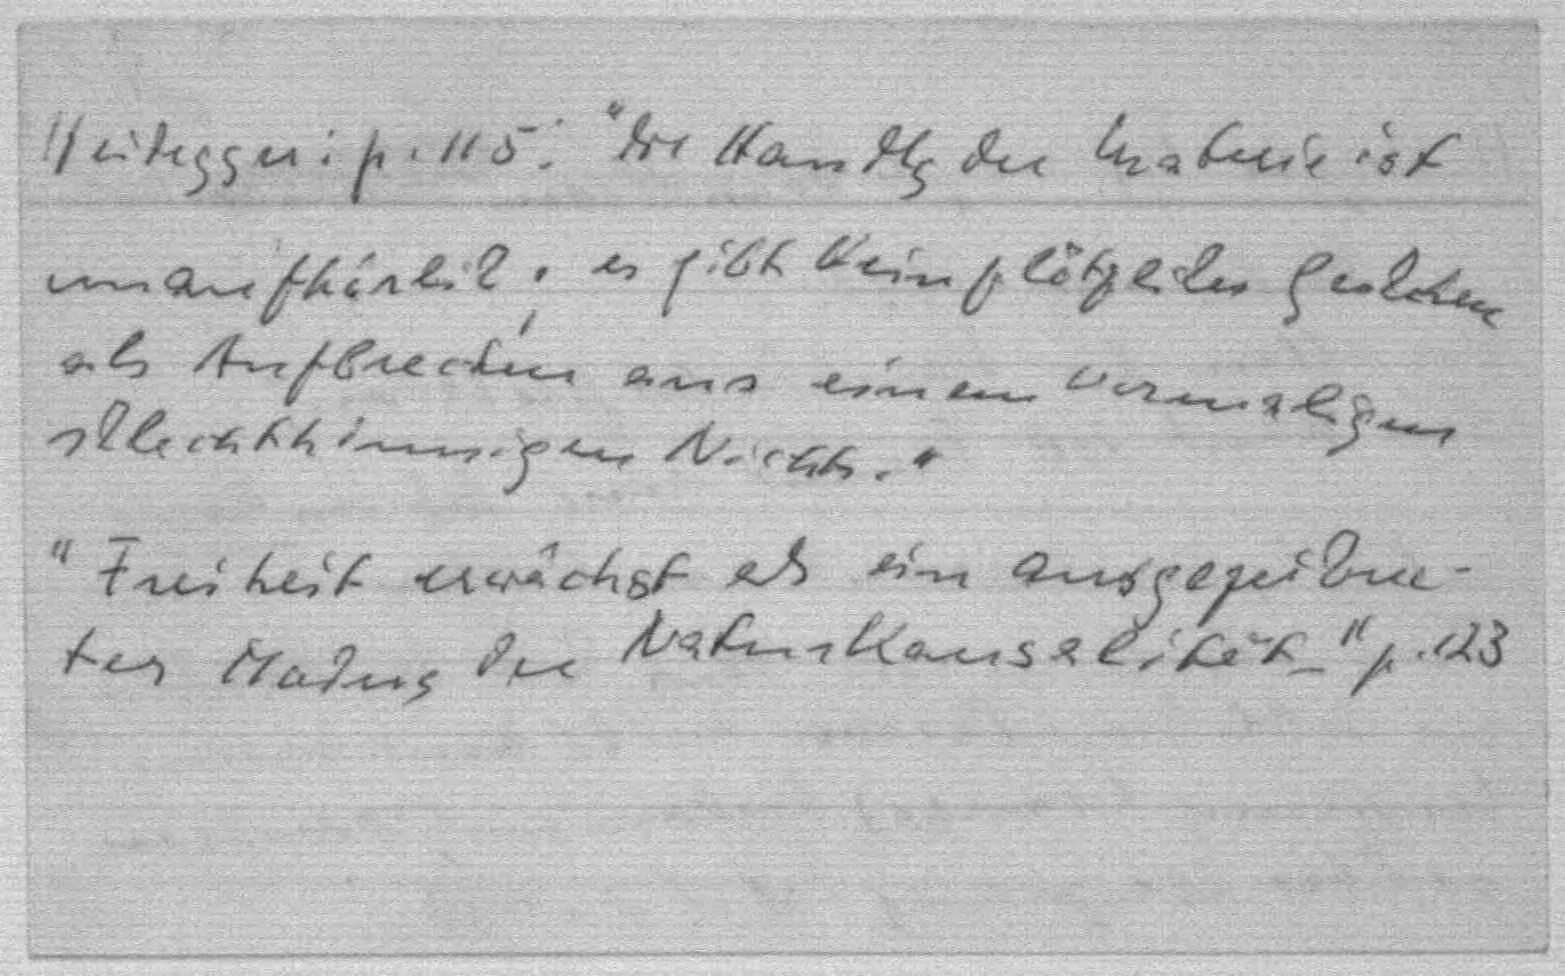 Heidegger: p. 115: "Die Handlg der Materie ist
unaufhörlich; es gibt kein plötzliches Geschehen
als Aufbrechen aus einem vormaligen
schlechthinnigen Nichts."
"Freiheit erwächst als ein ausgezeichne-
ter Modus der Naturkausalität" p. 123